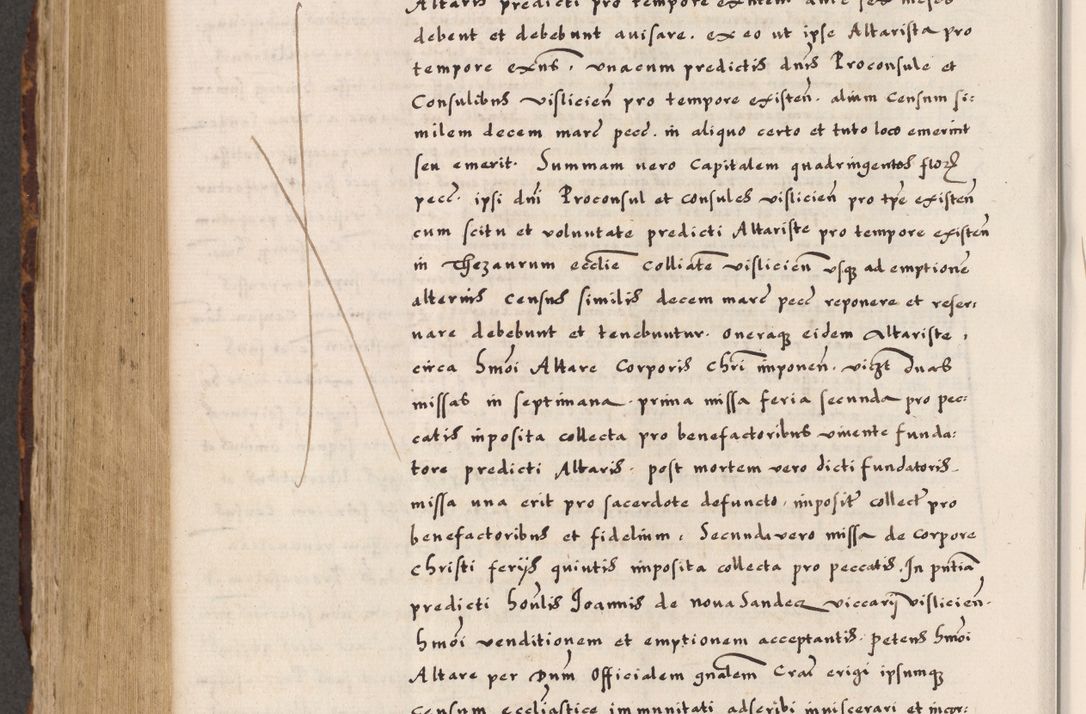 Altaris predicti pro tempore existentem ante sex menses
debent et debebunt auisare. ex eo ut ipse Altarista pro
tempore exñs, vnacum predictis dnis Proconsule et
Consulibus vislicień pro tempore existeñ. alium Censum si:
milem decem marc̃ pecc̃. in aliquo certo et tuto loco emerint
seu emerit. Summam uero Capitalem quadringentos floꝝ
pecc̃. ipsi dñi Proconsul et consules vislicień pro tp̃e existeñ
cum scitu et voluntate predicti Altariste pro tempore existeñ
in Thezaurum ecclie̅ Colliate̅ vislicień vsqꝫ ad emptione̅
alterius Census similis decem marc̃ pecc̃ reponere et reser:
uare debebunt et tenebuntur. oneraqꝫ eidem Altariste,
circa hm̃oi Altare Corporis Chrĩ imponeñ. viczt duas
missas in septimana. prima missa feria secunda pro pec:
catis imposita collecta pro benefactoribus viuente funda:
tore predicti Altaris. post mortem vero dicti fundatoris
missa una erit pro sacerdote defuncto, imposit̃ collect̃ pro
benefactoribus et fidelium, Secunda vero missa de corpore
Christi ferijs quintis imposita collecta pro peccatis, In pñtia
predicti hoñlis Joannis de noua Sandecz viccarij vislicień.
hm̃oi venditionem et emptionem acceptantis. petens hm̃oi
Altare per Dnm̃ Officialem gñalem Craĉ erigi ipsumqꝫ
Censum ecclesiastice immunitati adscribi inuiscerari et incor: